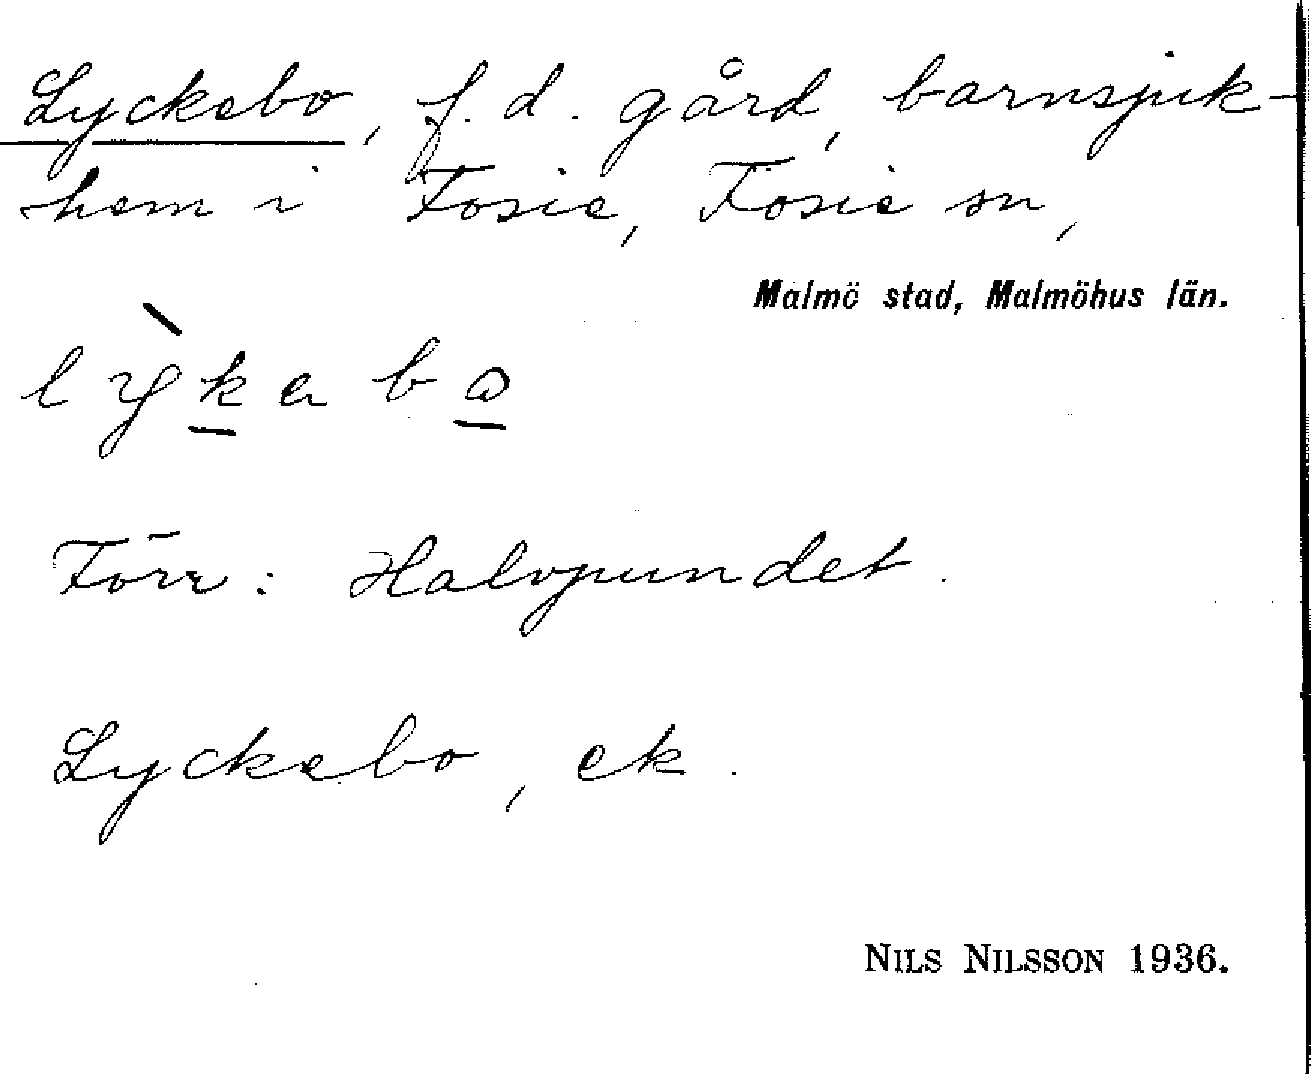 Lyckebo, f.d. gård, barnsjuk-
hem i Fosie, Fosie sn,
Malmö stad, Malmöhus län.
lỳkabo
Förr: Halvpundet.
Lyckebo, ek.
NILS NILSSON 1936.